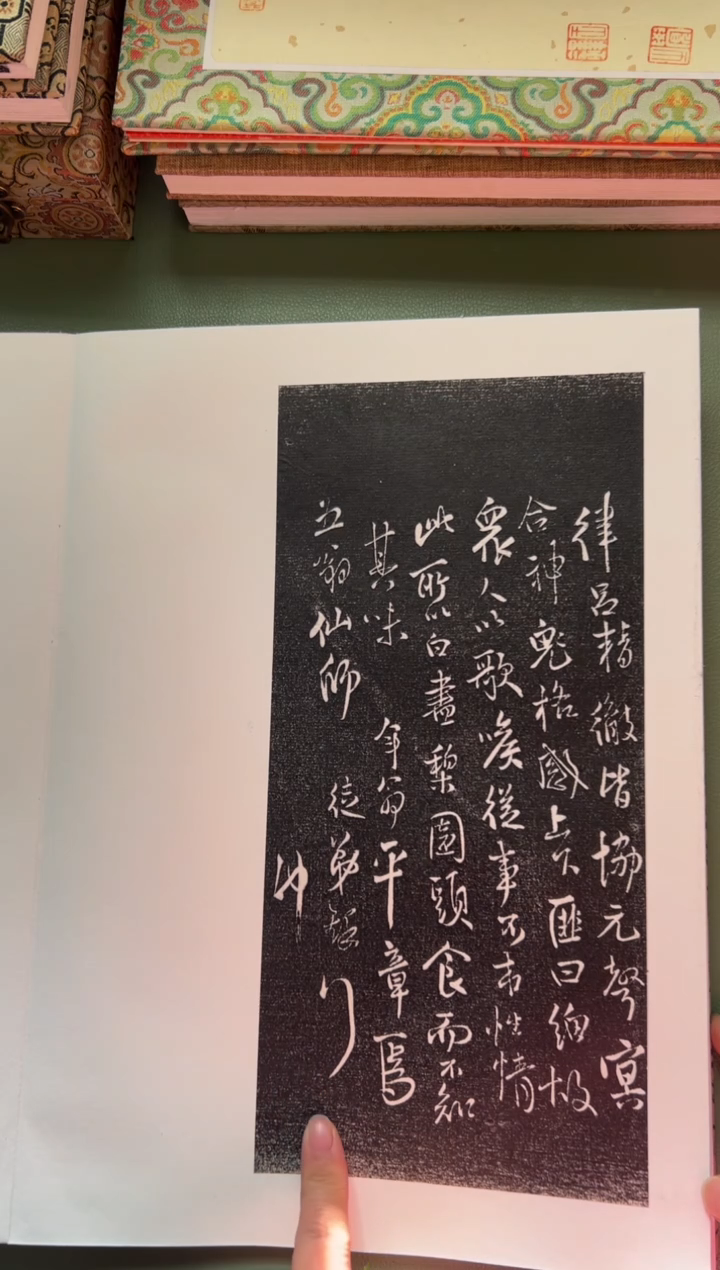 律呂精徹皆協元聲冥
合神鬼格感上下匪曰細故
眾人以歌喉從事不本性情
此所以白盡梨園頭食而不知
其味 年翁平章焉
翁仙師 徒弟